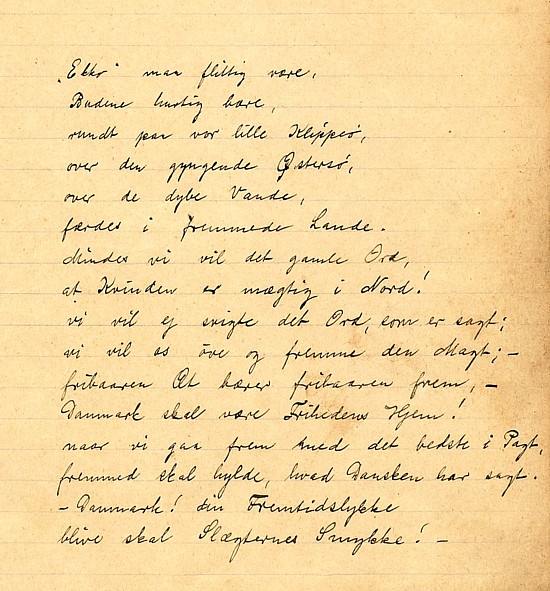 „Ekko" maa flittig være,
Budene hurtig bære,
rundt paa vor lille Klippeø,
over den gyngende Østersø,
over de dybe Vande,
færdes i fremmede Lande.
Mindes vi vil det gamle Ord,
at Kvinden er mægtig i Nord!
vi vil ej svigte det Ord, som er sagt;
vi vil os öve og fremme den Magt; –
fribaaren Æt bærer fribaaren frem, –
Danmark skal være Frihedens Hjem!
naar vi gaa frem med det bedste i Pagt,
fremmed skal hylde, hvad Dansken har sagt.
– Danmark! din Fremtidslykke
blive skal Slægternes Smykke! –